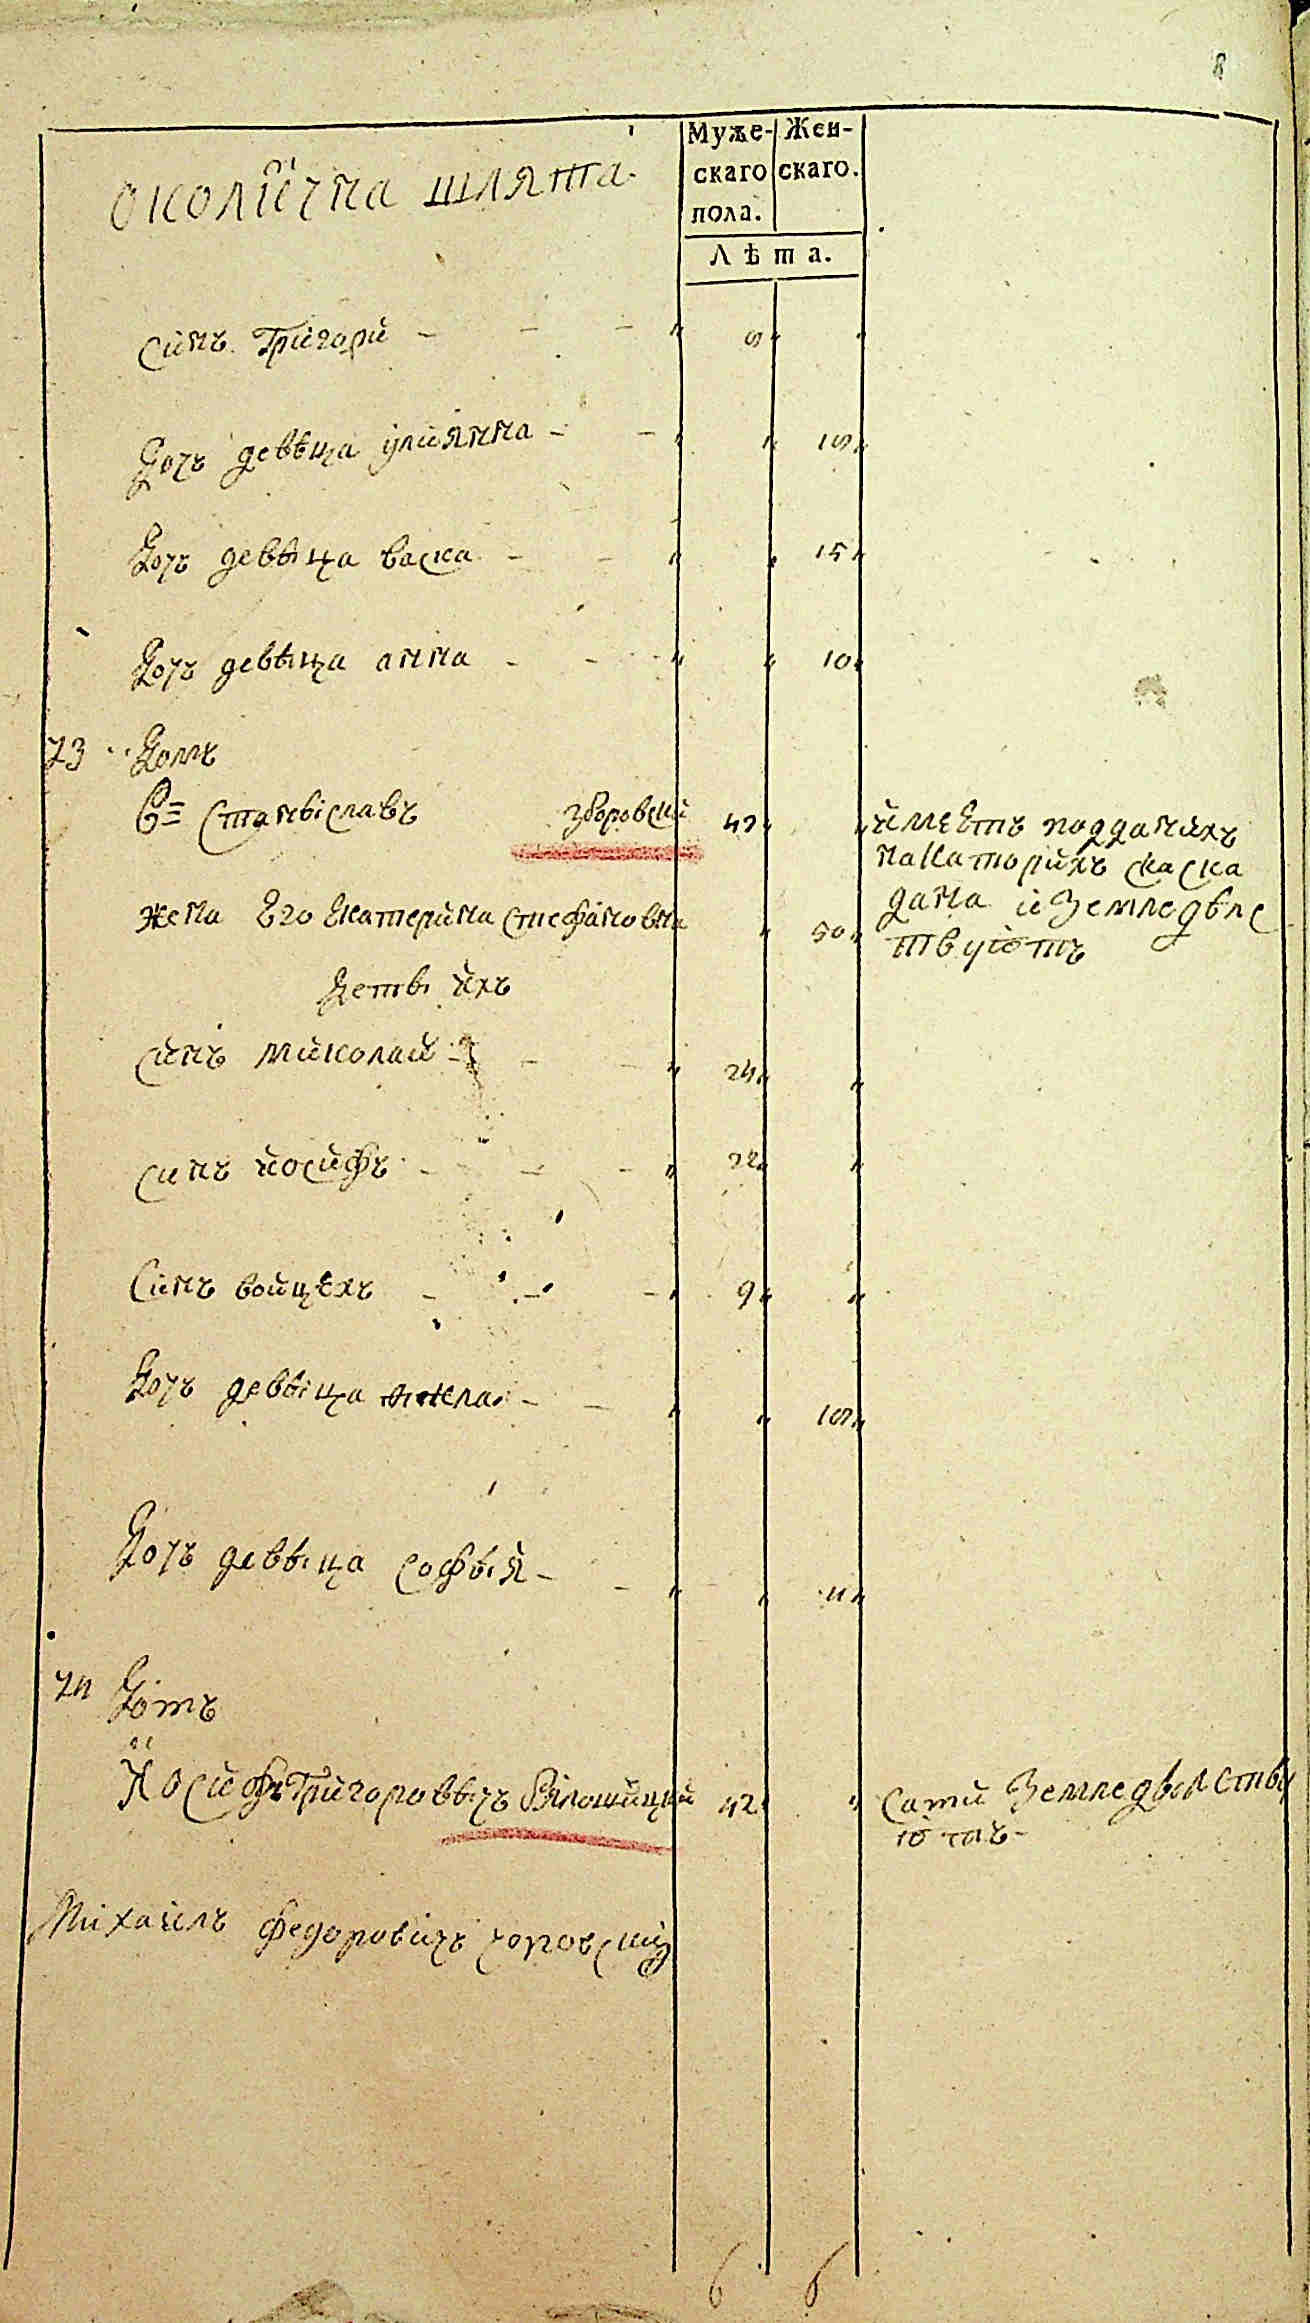 8
околична шляхта.
Муже-
скаго
пола.
Жен-
скаго.
Лѣта.
синъ Григори 9
доч девѣца улиянна 19
доч девѣца васка 15
доч девѣца анна 10
73 Домъ
Станѣславъ зборовски 49
имеетъ подданихъ
накаторихъ скаска
дана и Земледѣлс
твуютъ
жена Его Екатерина стефановна 50
детѣ ихъ
синъ миколай 24
синъ йосифъ 22
синъ войцехъ 9
доч девѣца 19
доч девѣца софѣя 11
74 домъ
Йосифъ Григоровѣчъ 42
сами Земледѣлству
ютъ
Михаилъ федоровичъ
6 6